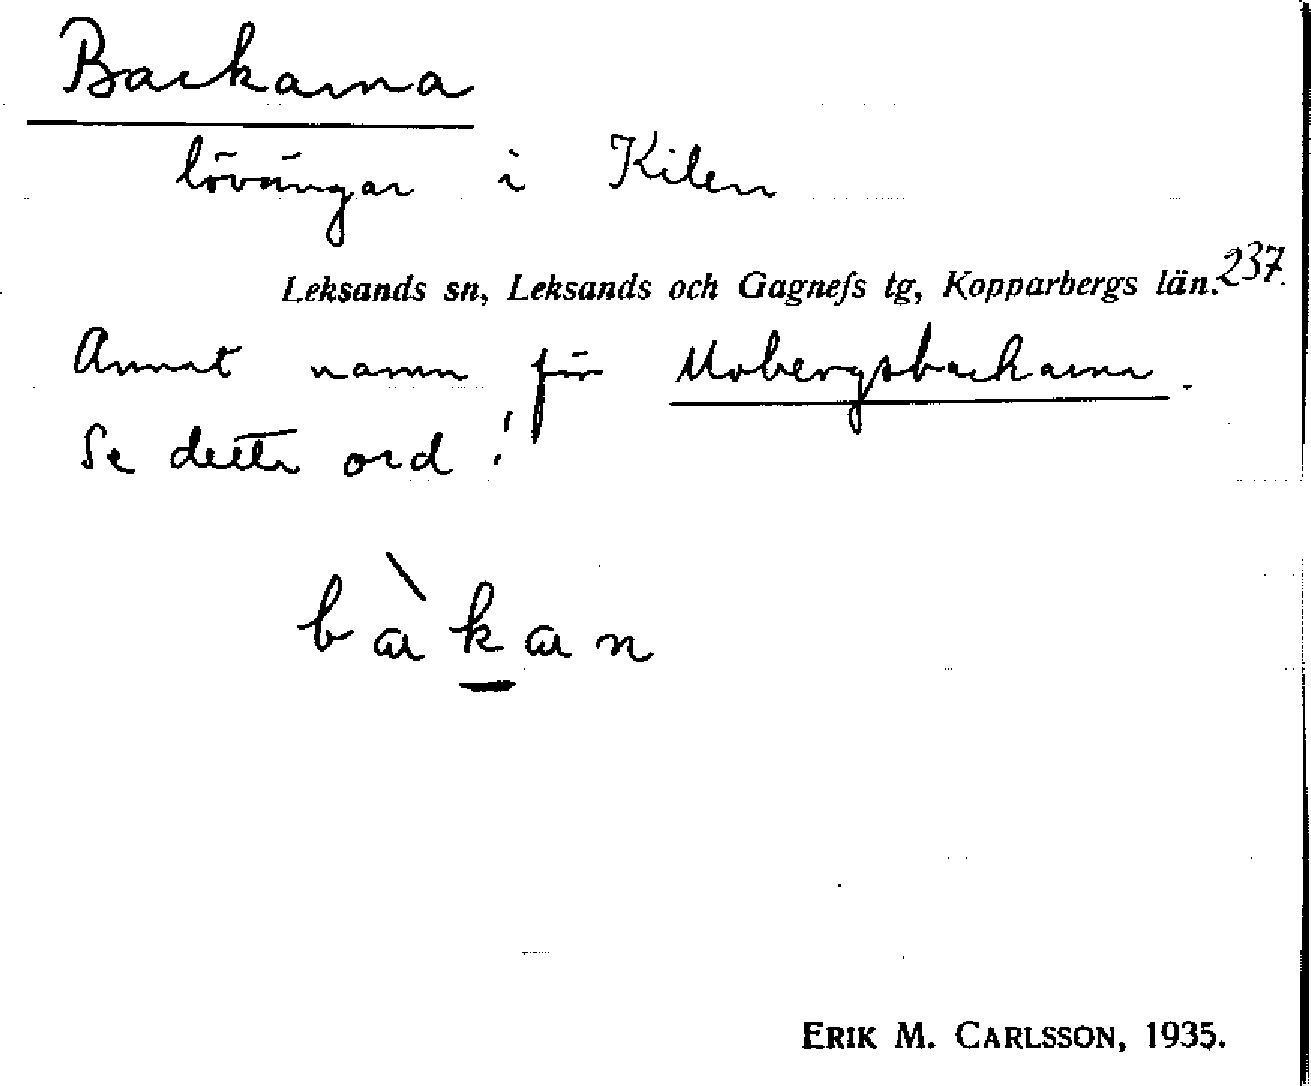 Backarna
lövängar i Kilen
Leksands sn, Leksands och Gagnefs tg, Kopparbergs län. 237.
Annat namn för Mobergsbackarna.
Se detta ord!
bàkan
ERIK M. CARLSSON, 1935.